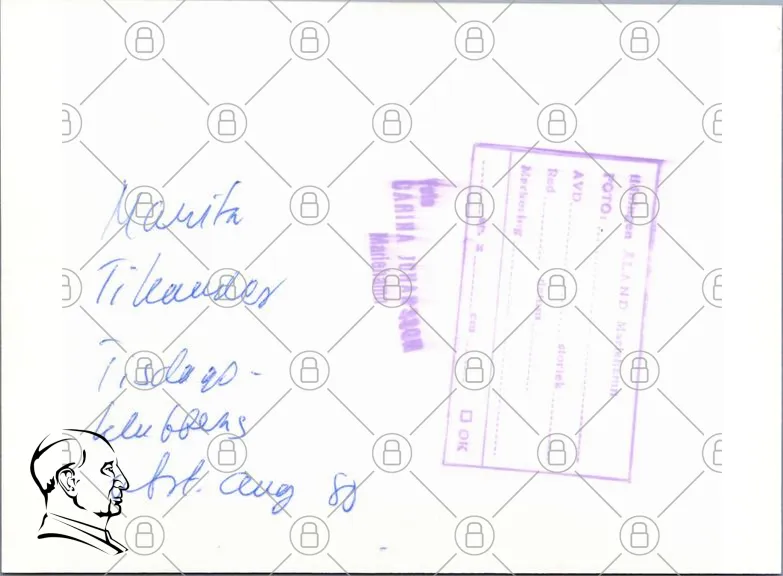 Marita
Tikander
Tisdags-
klubbens
utst. aug 80
Foto
CARINA JOHANSSON
Mariehamn
Tidningen ÅLAND Mariehamn
FOTO:
AVD.
Red storlek
Merkostng
x cm
OK